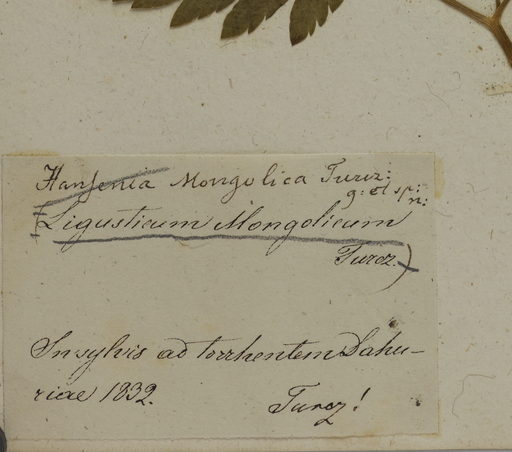 Hansenia Mongolica Turcz:
g: et sp:
n:
Ligusticum Mongolicum
Turcz.)
In sylvis ad torrhentem Dahu-
riae 1832.
Turcz!